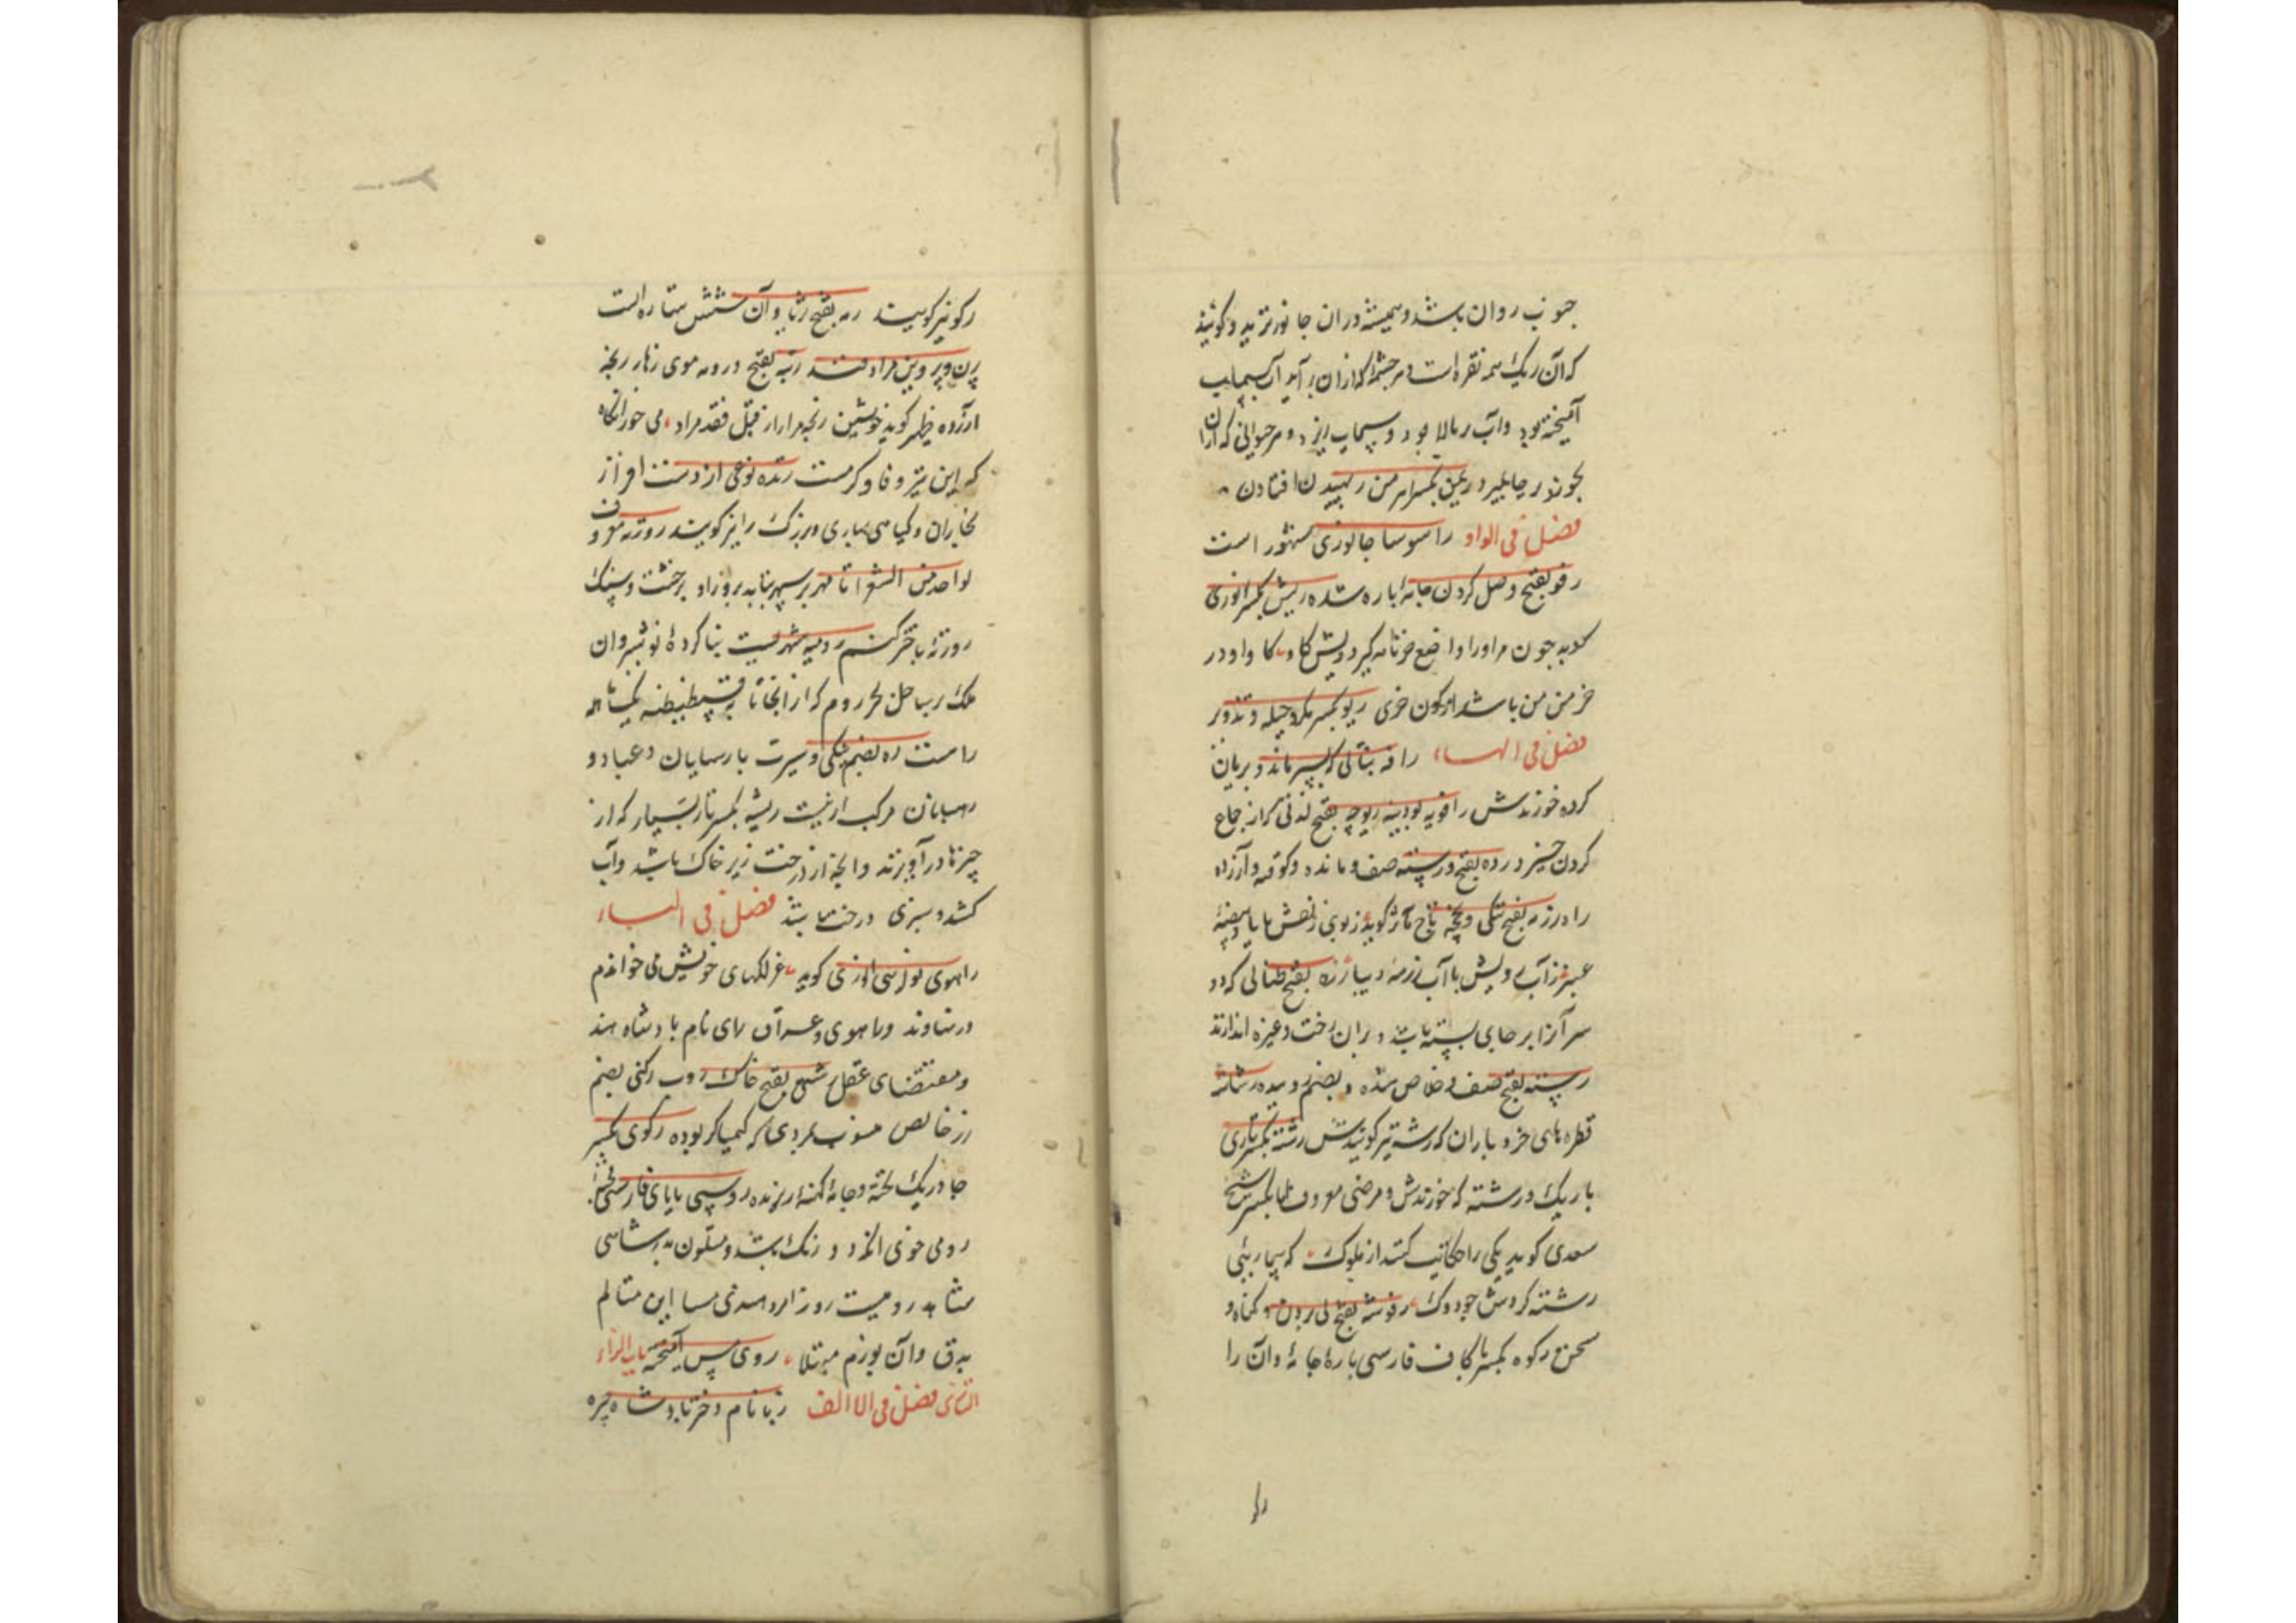 جنوب روان باشد و همیشه در آن جانور نزید و گویند
که آن ریک همه نقره است و هر چشمه که از آن بر آید آب سیماب
آمیخته بود و آب بر بالا بود و سیماب زیر و هر حیوانی که از آن
بخورد بر جا بمیرد ریمن بکسر اهرمن رهیدن افتادن
فصل فی الواو راسو سا جانوری مشهور است
رفو بفتح وصل کردن جامهٔ پاره شده ریش بکسر انوری
گوید چون مرا ورا واضع خر نامه گیرد ریش گاو گاو او در
خرمن من باشد از کون خری ریو بکسر مکر و حیله و تزویر
فصل فی الهاء رافه نباتی که بسیر ماند و بریان
کرده خورندش رافویه بودینه ریوچه بفتح لذتی که از جماع
کردن خیزد رده بفتح و رسته صف و مانده و کوفته و آزرده
را درزمه بفتح تنگی و بخچه
عبیر ز آب رویش با آب رزمه دیبا رژه بفتح طنابی که دو
سر آنرا بر جای بسته باشد و بر آن رخت و غیره اندازند
رسته بفتح صف و خلاص شده و بضم روییده رشاشه
قطره‌های خرد باران که رشه نیز گویندش رشته بکسر تاری
باریک و رشته که خورندش و مرضی معروف شیخ
سعدی گوید یکی را حکایت کنند از ملوک که بیماریٔ
رشته کردش چو دوک رفوشه بفتح و گناه و
سخن رکوه بکسر با کاف فارسی پارهٔ جامه و آن را
را
رکو نیز گویند رمه بفتح و آن شش ستاره است
پرن و پروین مرادفند رنبه بفتح در رمه موی زهار رنجه
آزرده ظهیر گوید خویشتن رنجه مدار از قبل فقد مراد می خور انگاه
که این نیز وفا و کرمست رنده نوعی از دست افزاز
نجاران و گیاهی بهاری و بزرگ را نیز گویند روزنه معروف
لواحد من الشعرا تا مهر بر سپهر بتابد بروزاو بر خشت و سنگ
روزنه باختر کنم رومیه شهریست بنا کردهٔ نوشیروان
ملک بر ساحل بحر روم که از آنجا تا به قسطنطنیه یکساله
راهست ره بضم نیکی و سیرت پارسایان و عباد و
رهبانان مرکب ازنیت ریشه بکسر تار بسیار که از
چیزها در آویزند و آنچه از درخت زیر خاک باشد و آب
کشد و سبزی درخت باشد فصل فی الیاء
راهوی نوازشی انوری گوید غزلکهای خویش می‌خواندم
در نهاوند و راهوی و عراق رای نام پادشاه هند
و مقتضای عقل بفتح خاک روب رکنی بضم
زر خالص منسوب بمردی که کیمیاگر بوده رکوی بکسر
چادر یک لخته و جامهٔ کهنه از رنده روسپی با پای فارسی
رومی خونی انکه دو رنک باشد و متلون
این مثالم
بدق و آن بورم مبتلا روی پس آمیخته باب الزاء
الزای فصل فی الا الف زبا نام دختر پادشاه حیره